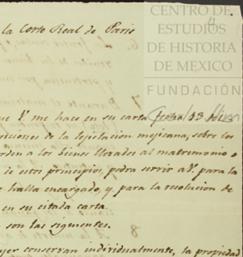 CENTRO DE
ESTUDIOS
DE HISTORIA
DE MEXICO
FUNDACIÓN
la Corte Real de Paris
que V. me hace en su carta fecha 13
siciones de la lejislacion mejicana, sobre los
orden a los bienes llevados al matrimonio o
de estos principios, podra servir a V. para la
halla encargado, y para la resolucion de
en su citada carta.
son las siguientes.
conservan individualmente, la propiedad